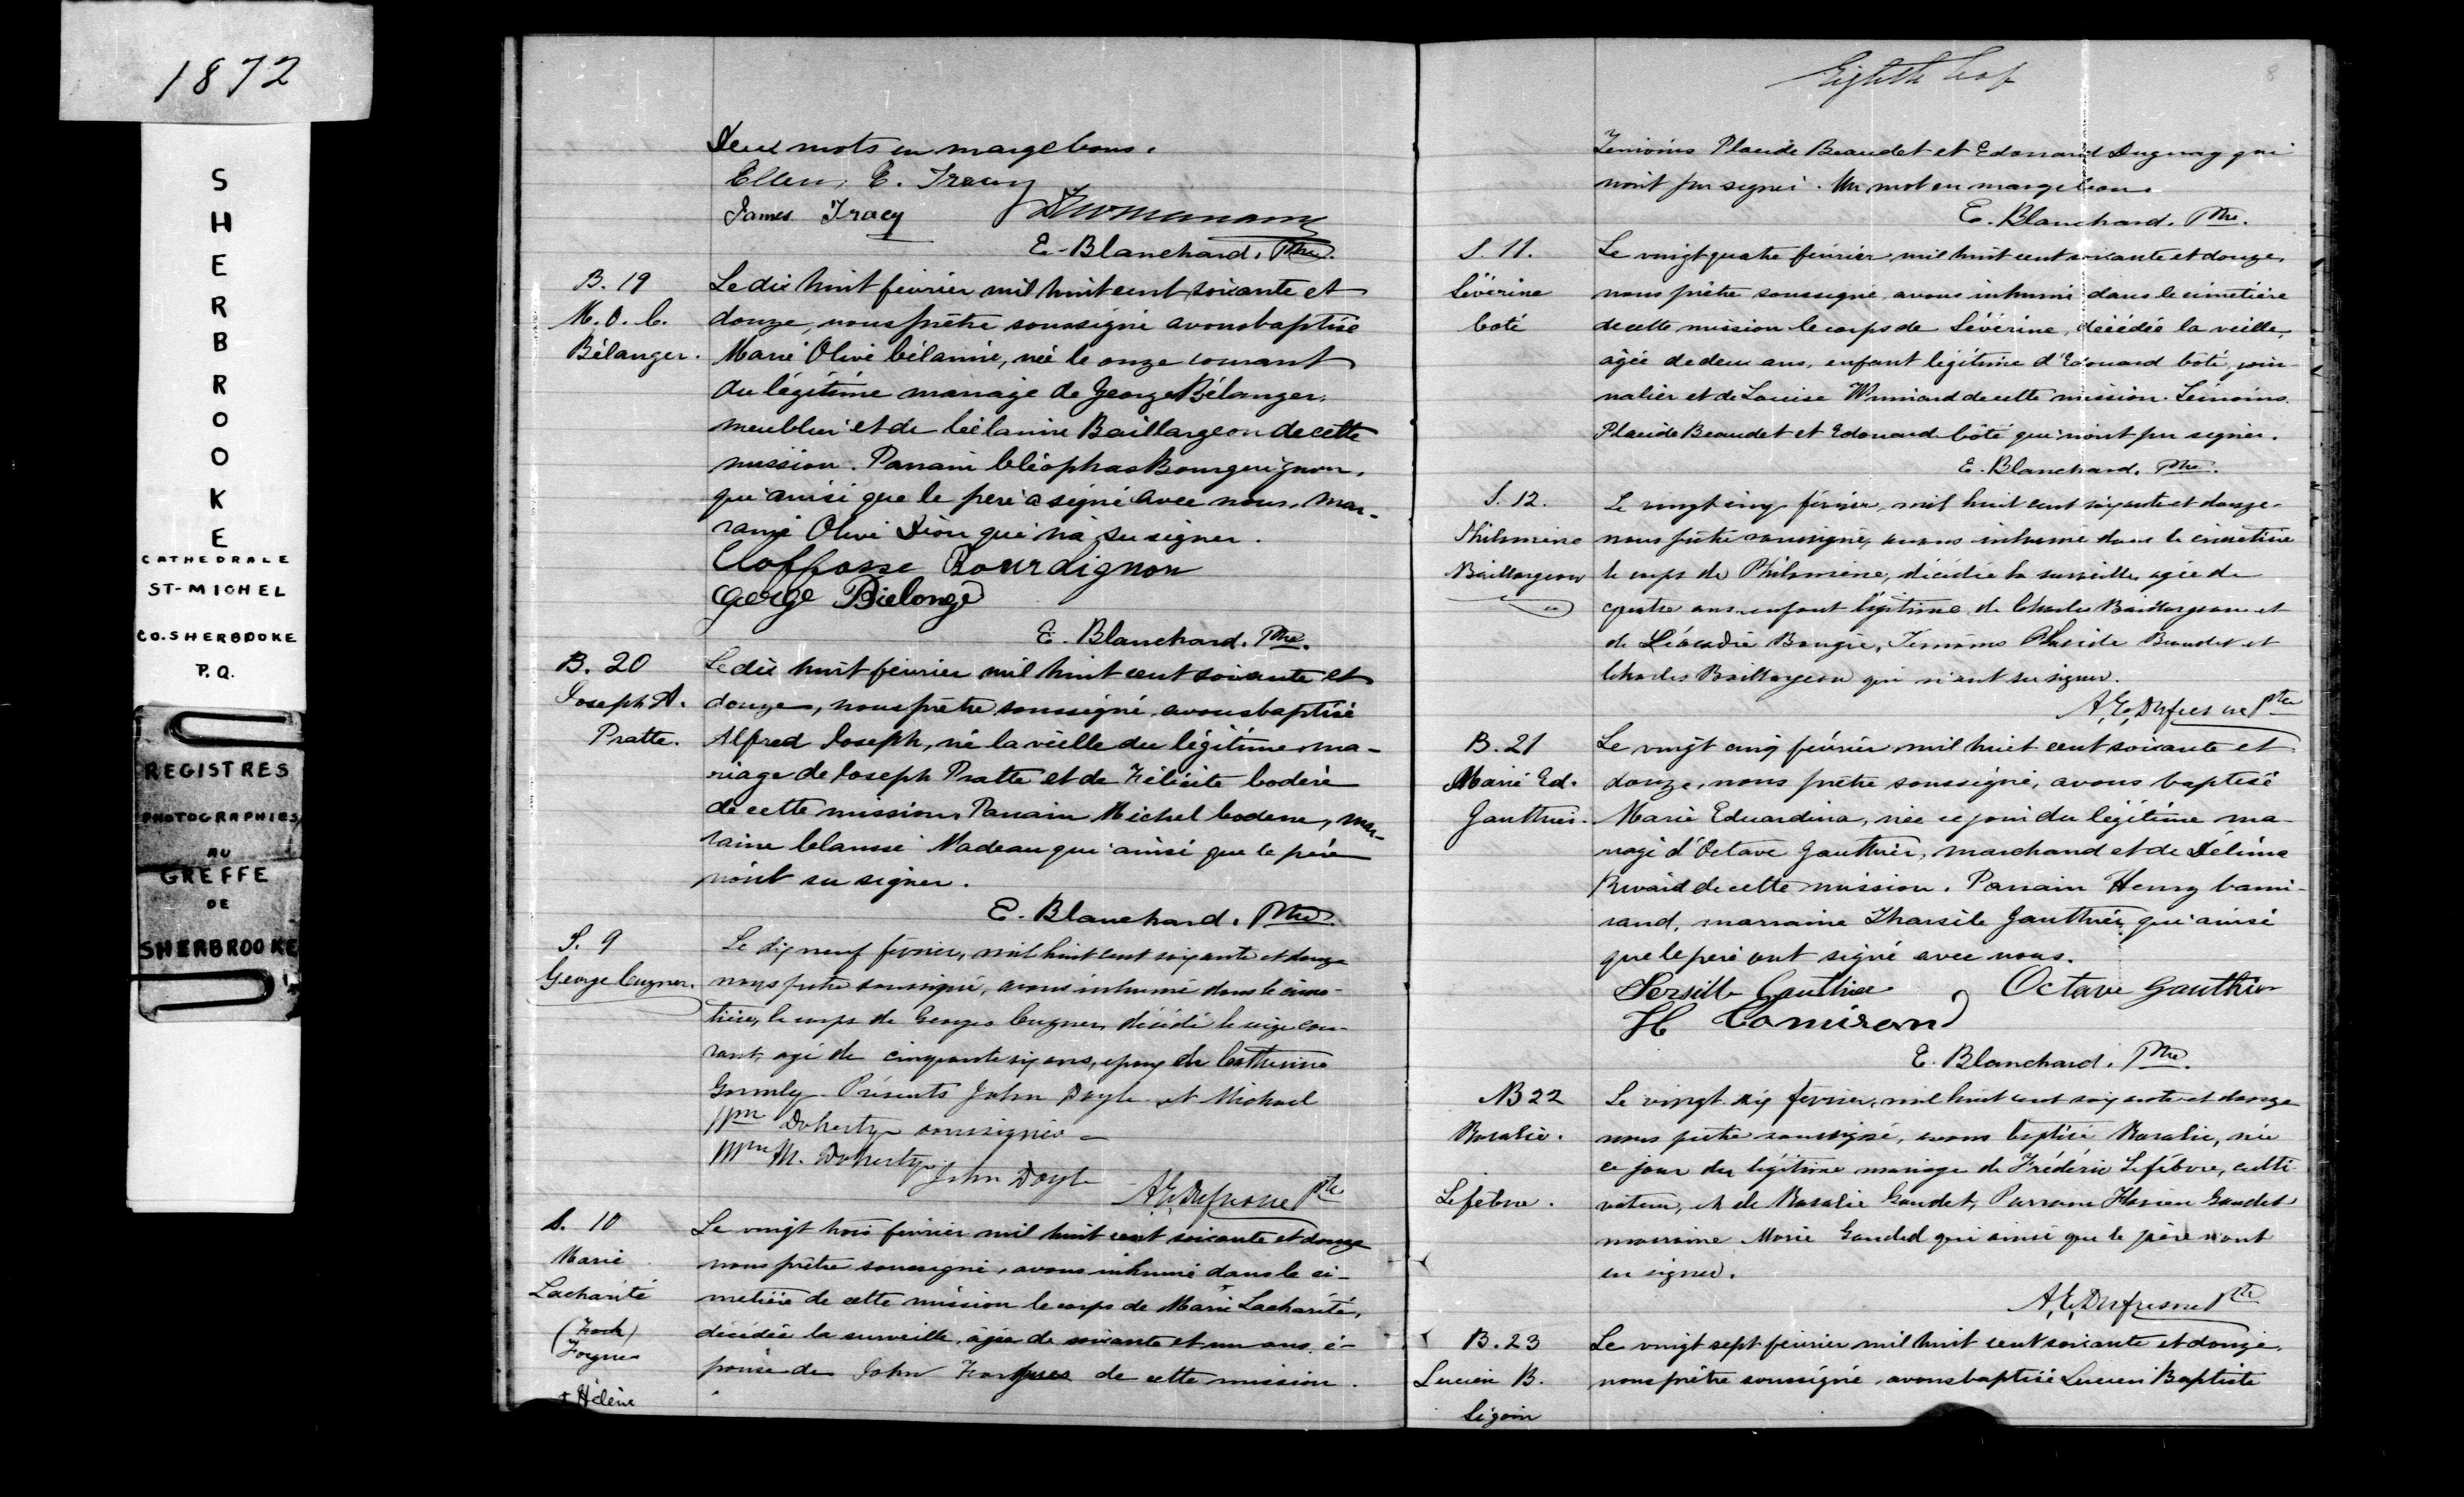 1872
SHERBROOKE
CATHEDRALE
ST-MICHEL
CO. SHERBROOKE
P.Q.
REGISTRES
PHOTOGRAPHIES
AU
GREFFE
DE
SHERBROOKE
Deux mots en marge bons.
Ellen E. Tracy
James Tracy
E. Blanchard. Ptre.
B. 19
M. O. C.
Bélanger.
Le dix huit février mil huit cent soixante et
douze, nous prêtre soussigné avons baptisé
Marie Olive Célanire, née le onze courant
du légitime mariage de George Bélanger,
meublier et de Célanire Baillargeon de cette
mission. Parrain Cléophas Bourguignon,
qui ainsi que le père a signé avec nous, mar-
raine Olive Dion qui n'a su signer.
Cloffosse Bourdignon
George Bielonge
E. Blanchard. Ptre.
B. 20
Joseph A.
Pratte.
Le dix huit février mil huit cent soixante et
douze, nous prêtre soussigné avons baptisé
Alfred Joseph, né la veille du légitime ma-
riage de Joseph Pratte et de Félicite Coderé
de cette mission, Parrain Michel Codere, mar-
raine Clarisse Nadeau qui ainsi que le père
n'ont su signer.
E. Blanchard. Ptre.
S. 9
George Cugner.
Le dix neuf février, mil huit cent soixante et douze
nous prêtre soussigné, avons inhumé dans le cime-
tière, le corps de Georges Cugner, décédé le seize cou-
rant, agé de cinquante six ans, epoux de Catherine
Gormly. Présents John Doyle et Michael
Wm Doherty soussignés
Wm M. Doherty
John Doyle
A. E. Dufresne Ptre
S. 10
Marie
Lacharité
(Fork)
Forgues
+ Hélène
Le vingt trois février mil huit cent soixante et douze
nous prêtre soussigné, avons inhumé dans le ci-
metière de cette mission le corps de Marie + Lacharité,
décédée la surveille, âgée de soixante et un ans, é-
pouse de John Forgues de cette mission.
Eighth leaf
8
Témoins Placide Beaudet et Edouard Duguay qui
n'ont pu signer. Un mot en marge bon.
E. Blanchard. Ptre.
S. 11.
Sévérine
Coté
Le vingt quatre février mil huit cent soixante et douze,
nous prêtre soussigné, avons inhumé dans le cimetière
de cette mission le corps de Sévérine, décédée la veille,
agée de deux ans, enfant légitime d'Edouard Coté, jour-
nalier et de Louise de cette mission. Témoins
Placide Beaudet et Edouard Côté qui n'ont pu signer.
E. Blanchard. Ptre.
S. 12.
Philomène
Baillargeon
Le vingt cinq février, mil huit cent soixante et douze
nous prêtre soussigné, avons inhumé dans le cimetière
le corps de Philomène, décédée la surveille, agée de
quatre ans enfant légitime de Charles Baillargeon et
de Léocadie Bougie, Témoins Placide Beaudet et
Charles Baillargeon qui n'ont su signer.
A. E. Dufresne Ptre
B. 21
Marie Ed.
Gauthier.
Le vingt cinq février mil huit cent soixante et
douze, nous prêtre soussigné, avons baptisé
Marie Eduardina, née ce jour du légitime ma-
riage d'Octave Gauthier, marchand et de Délima
Rivard de cette mission. Parrain Henry Cami-
rand, marraine Tharsile Gauthier, qui ainsi
que le père ont signé avec nous.
Persille Gauthier
Octave Gauthier
H Camirand
E. Blanchard. Ptre.
B 22
Rosalie.
Lefebvre.
Le vingt six février, mil huit cent soixante et douze
nous prêtre soussigné, avons baptisé Rosalie, née
ce jour du légitime mariage de Frédéric Lefebvre, culti-
vateur, et de Rosalie Gaudet, Parrain Gaudet
marraine Marie Gaudet qui ainsi que le père n'ont
su signer.
A. E. Dufresne Ptre
B. 23
Lucien B.
Sigoin
Le vingt sept février mil huit cent soixante et douze,
nous prêtre soussigné, avons baptisé Lucien Baptiste